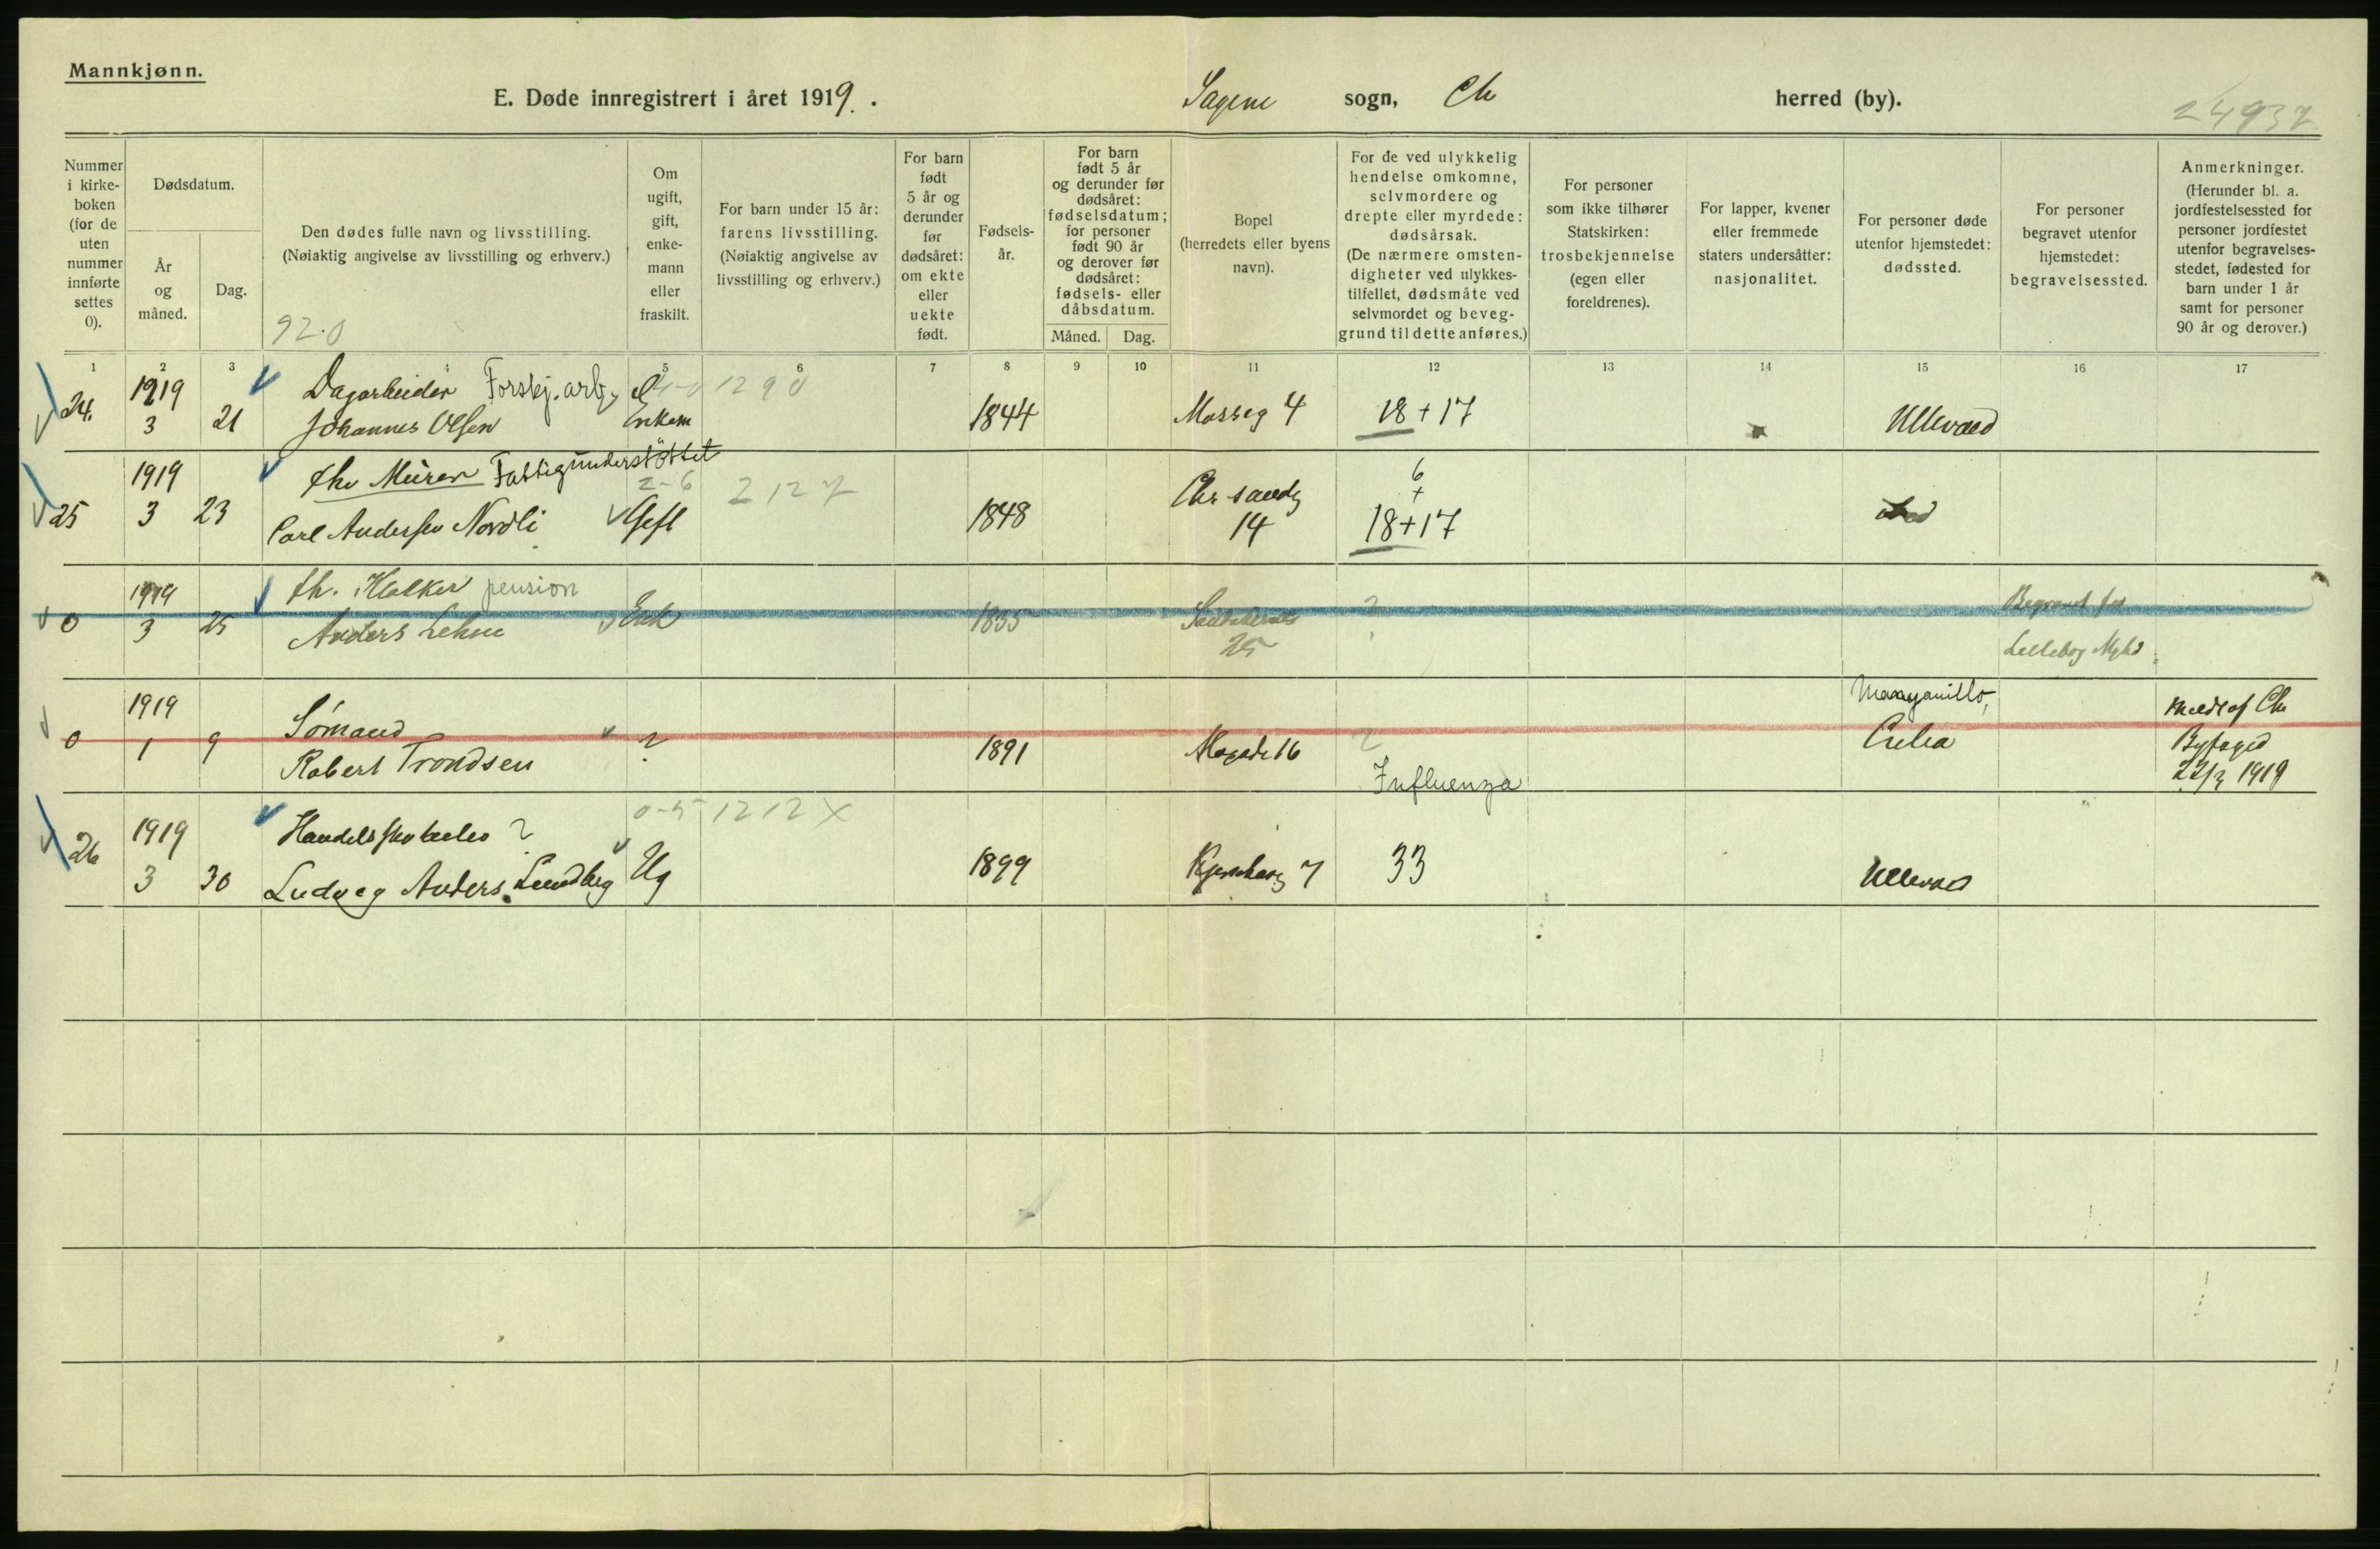 Mannkjønn.
E. Døde innregistrert i året 1919. Sagene sogn, Ch herred (by).
24937
Nummer i kirke- boken (for de uten nummer innførte settes 0).
Dødsdatum.
År og måned.
Dag.
Den dødes fulle navn og livsstilling.
(Nøiaktig angivelse av livsstilling og erhverv.)
92.0
Om ugift, gift, enke- mann eller fraskilt.
For barn under 15 år: farens livsstilling.
(Nøiaktig angivelse av livsstilling og erhverv.)
For barn født 5 år og derunder før dødsåret: om ekte eller uekte født.
Fødsels- år.
For barn født 5 år og derunder før dødsåret: fødselsdatum; for personer født 90 år og derover før dødsåret: fødsels- eller dåbsdatum.
Måned. Dag.
Bopel
(herredets eller byens navn).
For de ved ulykkelig hendelse omkomne, selvmordere og drepte eller myrdede: dødsårsak.
(De nærmere omsten- digheter ved ulykkes- tilfellet, dødsmåte ved selvmordet og beveg- grund til dette anføres.)
For personer som ikke tilhører Statskirken: trosbekjennelse (egen eller foreldrenes).
For lapper, kvener eller fremmede staters undersåtter: nasjonalitet.
For personer døde utenfor hjemstedet: dødssted.
For personer begravet utenfor hjemstedet: begravelsessted.
Anmerkninger.
(Herunder bl. a. jordfestelsessted for personer jordfestet utenfor begravelses- stedet, fødested for barn under 1 år samt for personer 90 år og derover.)
1 2 3 4 5 6 7 8 9 10 11 12 13 14 15 16 17
1919 Dagarbeider Forskj. arb. 1290
24. 3 21 Johannes Olsen Enkem 1844 Mosseg 4 18+17 Ullevaal
1919 fhv Murer Fattigunderstöttet 2-6 2127
25 3 23 Carl Andersen Nordli Gift 1848 Chr sandg 14 6 + 18+17
1919 fh. Klokker pension
0 3 25 Anders Lehne Enk 1835 25 ? Begravet fra Lilleborg
1919 Sømand Manzanillo,
0 1 9 Robert Trondsen ? 1891 16 ? Influenza Cuba Meldt af Chr Byfoged 22/3 1919
1919 Handels ? 0-5 1212 X
26 3 30 Ludvig Anders Lundberg Ug 1899 7 33 Ullevaal